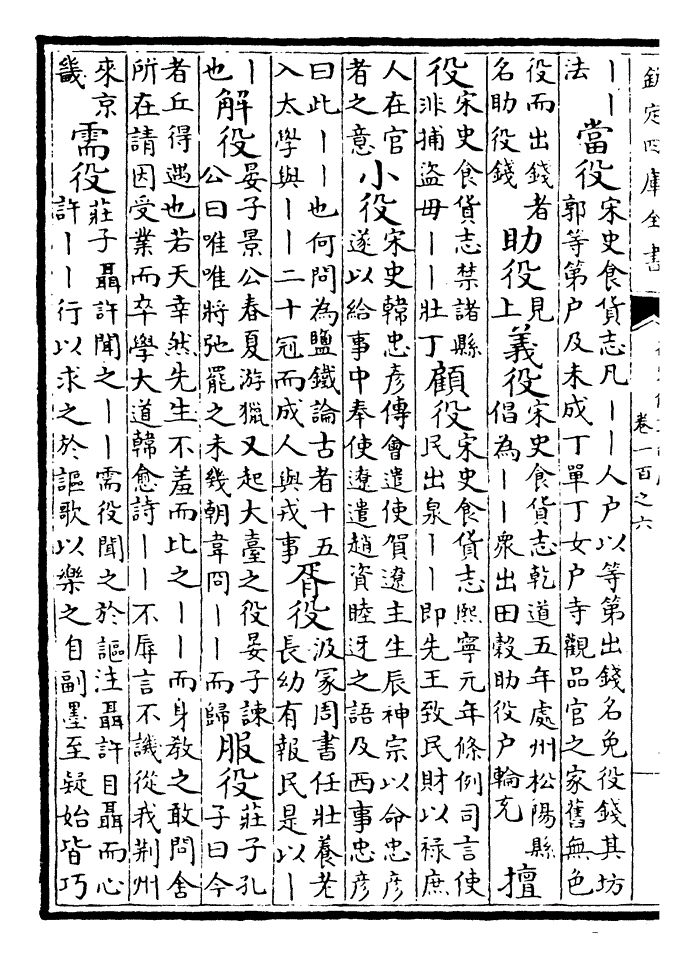 欽定四庫全書
卷一百之六
丨丨
法
當役
宋史食貨志凡丨丨人户以等第出錢名免役錢其坊
郭等第户及未成丁單丁女户寺觀品官之家舊無色
役而出錢者
名助役錢
助役
見
上
義役
宋史食貨志乾道五年處州松陽縣
倡為丨丨衆出田穀助役户輪充
擅
役
宋史食貨志禁諸縣
非捕盜毋丨丨壯丁
顧役
宋史食貨志熙寧元年條例司言使
民出泉丨丨即先王致民財以禄庶
人在官
者之意
小役
宋史韓忠彦傳會遣使賀遼主生辰神宗以命忠彦
遂以給事中奉使遼遣趙資睦迓之語及西事忠彦
曰此丨丨也何問為鹽鐵論古者十五
入太學與丨丨二十冠而成人與戎事
胥役
汲冢周書任壯養老
長幼有報民是以丨
丨
也
解役
晏子景公春夏游獵又起大臺之役晏子諫
公曰唯唯將弛罷之未幾朝韋冏丨丨而歸
服役
莊子孔
子曰今
者丘得遇也若天幸然先生不羞而比之丨丨而身教之敢問舍
所在請因受業而卒學大道韓愈詩丨丨不辱言不譏從我荆州
來京
畿
需役
莊子聶許聞之丨丨需役聞之於謳注聶許目聶而心
許丨丨行以求之於謳歌以樂之自副墨至疑始皆巧